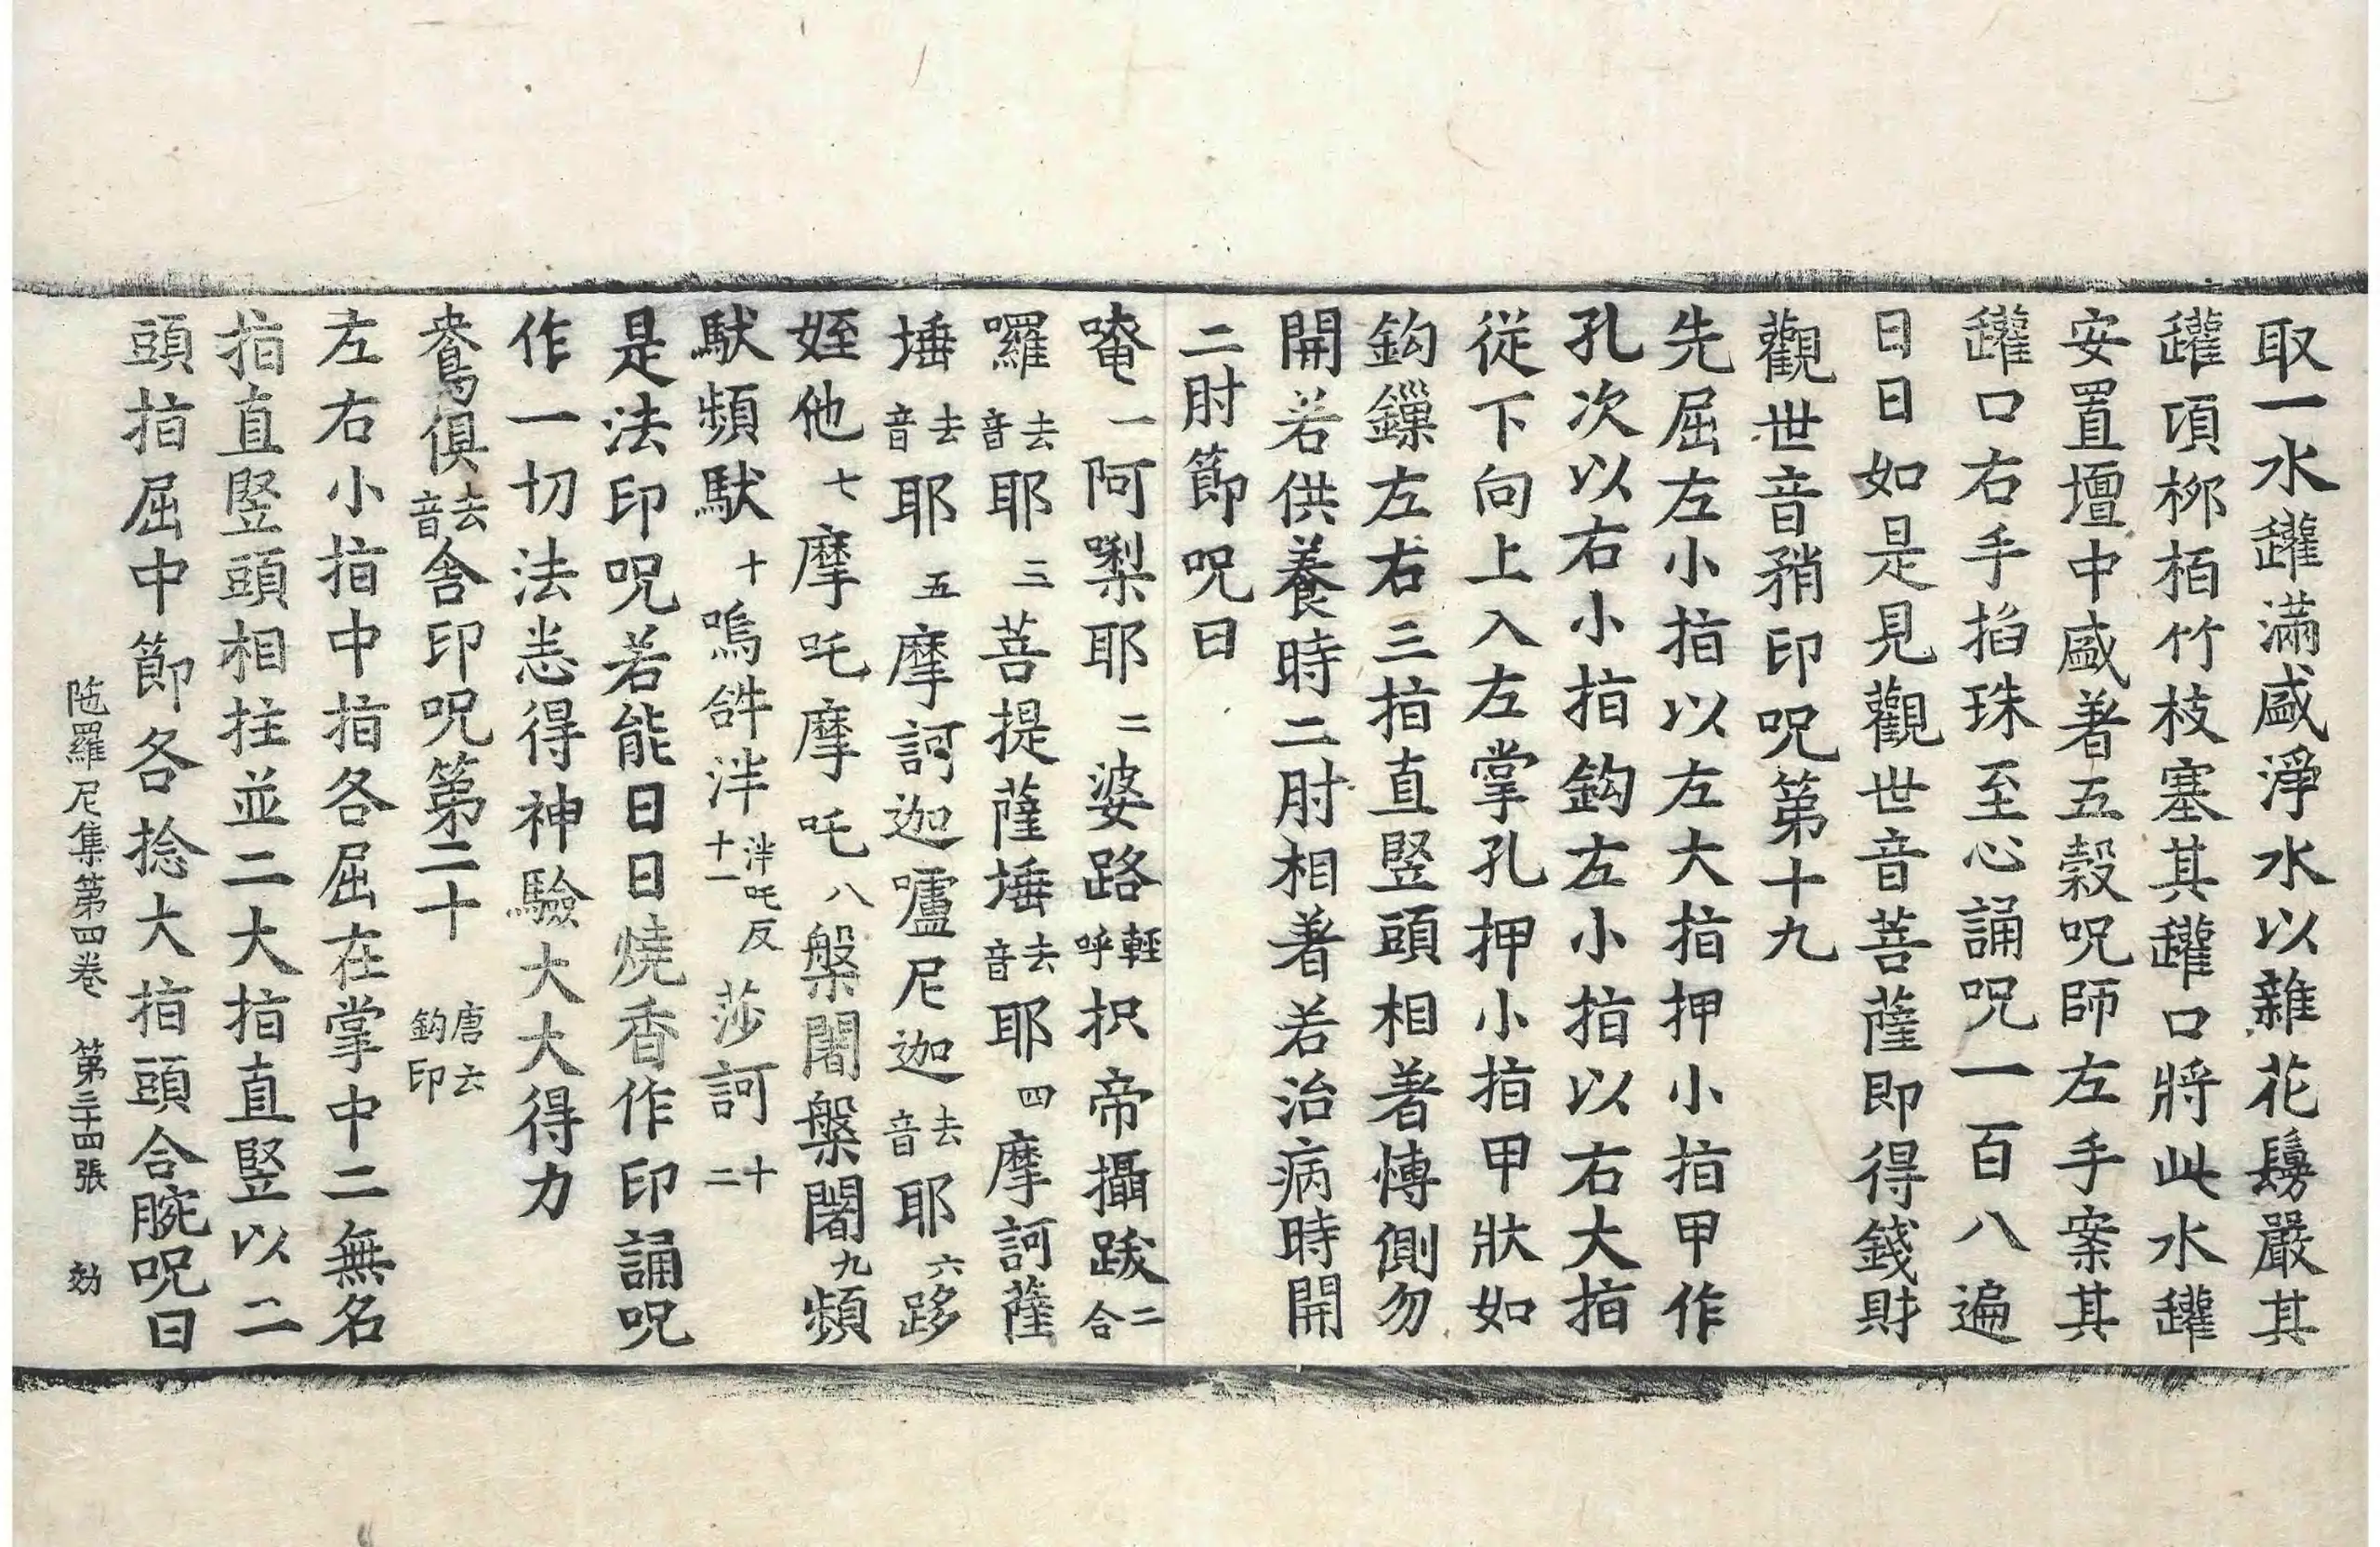 取一水罐滿盛淨水以雜花鬘嚴其
罐項栁栢竹枝塞其罐口將此水罐
安置壇中盛著五穀呪師左手案其
罐口右手掐珠至心誦呪一百八遍
日日如是見觀世音菩薩即得錢財
觀世音矟印呪第十九
先屈左小指以左大指押小指甲作
孔次以右小指鈎左小指以右大指
從下向上入左掌孔押小指甲狀如
鈎鏁左右三指直竪頭相著愽側勿
開若供養時二肘相著若治病時開
二肘節呪曰
唵一阿㗚耶二婆路輕呼枳帝攝跋二合
囉去音耶三菩提薩埵去音耶四摩訶薩
埵去音耶五摩訶迦嚧尼迦去音耶六跢
姪他七摩吒摩吒八槃闍槃闍九頻
馱頻馱十嗚𤙖泮泮吒反十一莎訶十二
是法印呪若能日日燒香作印誦呪
作一切法悉得神驗大大得力
鴦俱去音舍印呪第二十 唐云鈎印
左右小指中指各屈在掌中二無名
指直竪頭相拄並二大指直竪以二
頭指屈中節各捻大指頭合腕呪曰
陁羅尼集第四卷 第三十四張 効